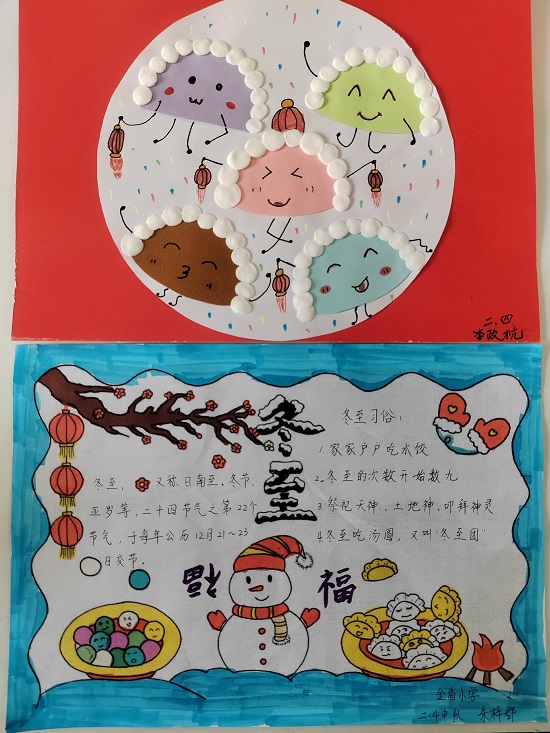 二.四
李政杭
冬至
冬至，又称日南至、冬节、
亚岁等，二十四节气之第22个
节气，于每年公历12月21~23
日交节。
冬至习俗：
1.家家户户吃水饺
2.冬至的次数开始数九
3.祭祀天神、土地神、叩拜神灵
4.冬至吃汤圆，又叫“冬至团”
福
福
小学
二.4中队 朱梓郡